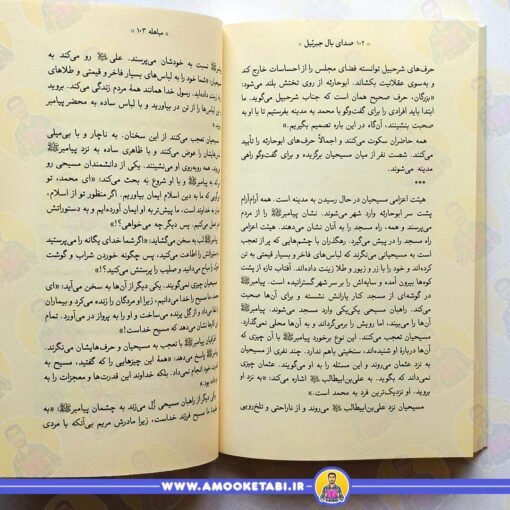 ۱۰۲ صدای بال جبرئیل
حرف‌های شرحبیل توانسته فضای مجلس را از احساسات خارج کند
و به‌سوی عقلانیت بکشاند. ابوحارثه از روی تختش بلند می‌شود:
«بزرگان، حرف صحیح همان است که جناب شرحبیل می‌گوید. ما
ابتدا باید افرادی را برای گفت‌وگو با محمد به مدینه بفرستیم تا با او به
صحبت بنشینند، آن‌گاه در این باره تصمیم بگیریم.»
همه حاضران سکوت می‌کنند و اجمالاً حرف‌های ابوحارثه را تأیید
می‌کنند. شصت نفر از میان مسیحیان برگزیده و برای گفت‌وگو راهی
مدینه می‌شوند.
***
هیئت اعزامی مسیحیان در حال رسیدن به مدینه است. همه آرام‌آرام
پشت سر ابوحارثه وارد شهر می‌شوند. نشان پیامبر ﷺ را از مردم
می‌پرسند و همه، راه مسجد را به آنان نشان می‌دهند. هیئت اعزامی
راه مسجد را در پیش می‌گیرد. رهگذران با چشم‌هایی که پر از تعجب
است به مسیحیانی می‌نگرند که لباس‌های فاخر و بسیار قیمتی به تن
کرده‌اند و خود را با زر و زیور و طلا زینت داده‌اند. آفتاب تازه از پشت
کوه‌ها بیرون آمده و سایه‌اش را بر سر شهر گسترانیده است. پیامبر ﷺ
در گوشه‌ای از مسجد کنار یارانش نشسته و برای آن‌ها صحبت
می‌کند. راهبان مسیحی یکی‌یکی وارد مسجد می‌شوند. پیامبر ﷺ
آن‌ها را می‌بیند، اما رویش را برمی‌گرداند و به آن‌ها محلی نمی‌گذارد.
مسیحیان تعجب می‌کنند. این نوع برخورد پیامبر ﷺ با آن چیزی که
آن‌ها دربارۀ او شنیده‌اند، سنخیتی باهم ندارد. چند نفری از مسیحیان
به نزد عثمان می‌روند و این مسئله را به او می‌گویند. عثمان چیزی
نمی‌داند که بگوید. به علی‌بن‌ابیطالب اشاره می‌کند: «به نزد او
بروید. او نزدیک‌ترین فرد به محمد است.»
مسیحیان نزد علی‌بن‌ابیطالب می‌روند و از ناراحتی و تلخ‌رویی
مباهله ۱۰۳
پیامبر ﷺ نسبت به خودشان می‌پرسند. علی رو می‌کند به
«شما خود را به لباس‌های بسیار فاخر و قیمتی و طلاهای
زینت داده‌اید. رسول خدا همانند همۀ مردم زندگی می‌کند. بروید
لباس‌ها را از تن در بیاورید و با لباس ساده به محضر پیامبر
مسیحیان تعجب می‌کنند از این سخنان. به ناچار و با بی‌میلی
را عوض می‌کنند و با ظاهری ساده به نزد پیامبر ﷺ
همه روبه‌روی او می‌نشینند. یکی از دانشمندان مسیحی رو
به پیامبر ﷺ و با او شروع به بحث می‌کند: «ای محمد، تو
که ما به دین اسلام ایمان بیاوریم. اگر منظور تو از اسلام،
است، ما پیش‌تر به او ایمان آورده‌ایم و به دستوراتش
می‌کنیم. پس دیگر چه می‌خواهی؟!»
پیامبر ﷺ لب به سخن می‌گشاید: «اگر شما خدای یگانه را می‌پرستید
را اطاعت می‌کنید، پس چگونه خوردن شراب و گوشت
را مباح می‌دانید و صلیب را پرستش می‌کنید؟!»
مسیحیان چیزی نمی‌گویند. یکی دیگر از آن‌ها به سخن می‌آید: «ای
ما مسیح را خدا می‌دانیم، زیرا او مردگان را زنده می‌کرد و بیماران
می‌داد و از گل پرنده می‌ساخت و او را به پرواز در می‌آورد. تمام
کارها نشان می‌دهد که مسیح خداست!»
پیامبر ﷺ با تعجب به مسیحیان و حرف‌هایشان می‌نگرند.
پاسخ می‌دهد: «همۀ این چیزهایی را که گفتید، مسیح به
خود انجام نمی‌داد. بلکه خداوند این قدرت‌ها و معجزات را به
داده بود.»
دیگر از راهبان مسیحی زُل می‌زند به چشمان پیامبر ﷺ: «به
ما مسیح فرزند خداست، زیرا مادرش مریم بی‌آنکه با مردی
WWW.AMOOKETABI.IR